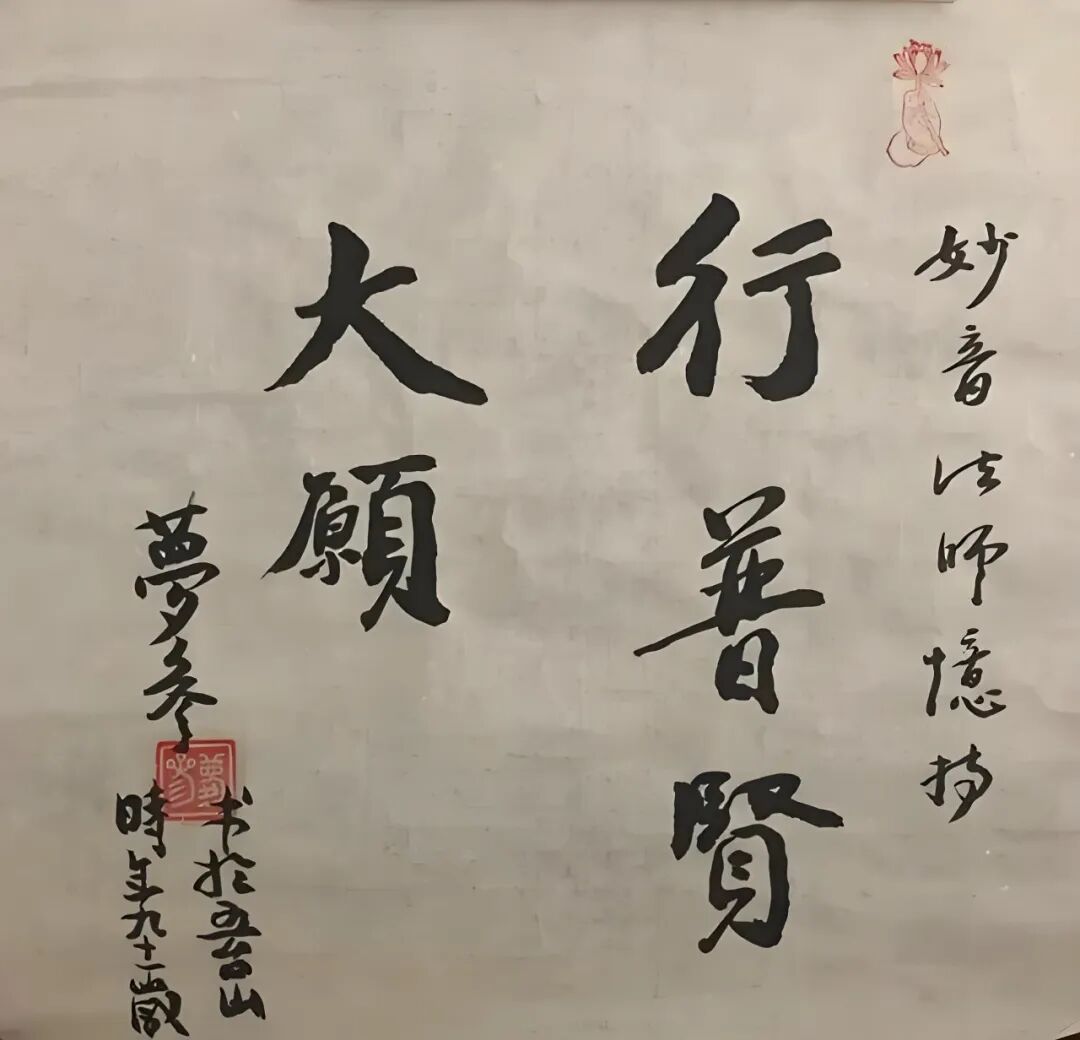 妙音法师憶持
行普賢
大願
夢參
书於五台山
時年九十一歲
夢參